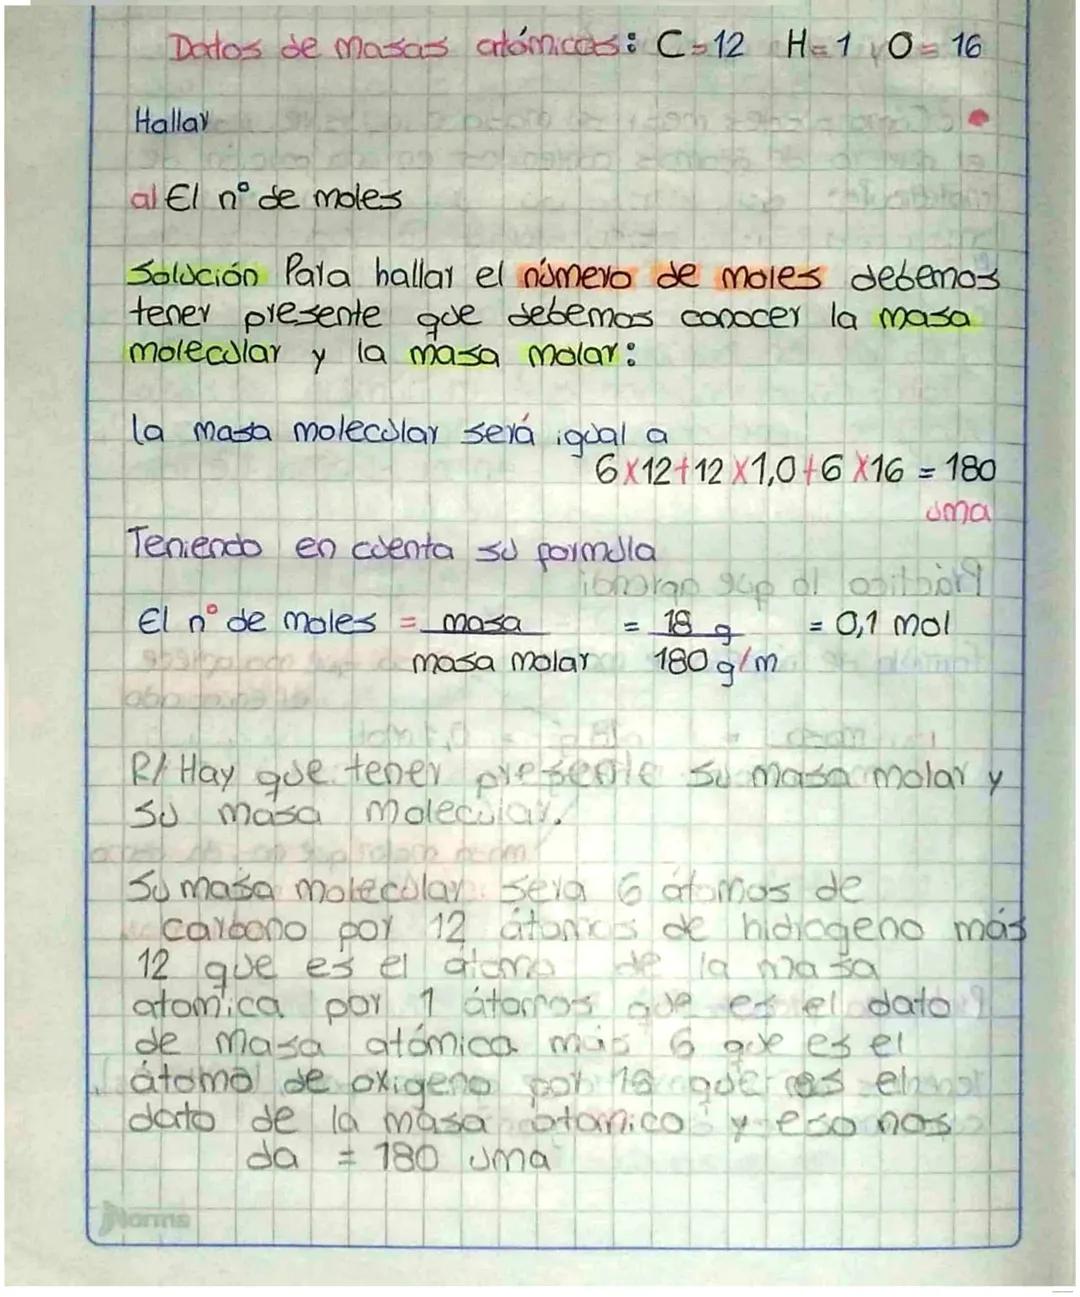 Datos de masas atómicas: C=12 H=1 y O=16
Hallar
a) El nº de moles
Solución Para hallar el número de moles debemos
tener presente que debemos conocer la masa
molecular y la masa molar:
la masa molecular será igual a
6x12+12x1,0+6x16 = 180
uma
Teniendo en cuenta su formula
El nº de moles = masa / masa molar = 18 g / 180 g/m = 0,1 mol
R/ Hay que tener presente su masa molar y
su masa molecular.
Su masa molecular sera 6 átomos de
carbono por 12 átomos de hidrogeno más
12 que es el átomo de la masa
atomica por 1 átomos que es el dato
de masa atómica más 6 que es el
átomo de oxigeno por 16 que es el
dato de la masa atomica y eso nos
da = 180 uma
Norma